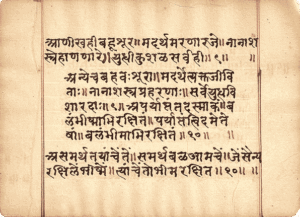 आणीखहीबहूशूर॥मदर्थमरणारजे॥नानाश
स्त्रेहाणणारे।युद्धीकुशळसर्वही॥९॥
अन्येचबहवःशूरा॥मदर्थेत्यक्तजीवि
ताः॥नानाशस्त्रप्रहरणाः॥सर्वेयुद्धवि
शारदाः॥९॥अपर्याप्तंतदस्माकं॥ब
लंभीष्माभिरक्षितं॥पर्याप्तंत्विदमेते
षां॥बलंभीमाभिरक्षितं॥१०॥
असमर्थतयाचेंतें॥समर्थबळआमचें॥जेंसैन्य
रक्षिलेंभीष्में॥त्याचेंतोंभीमरक्षित॥१०॥